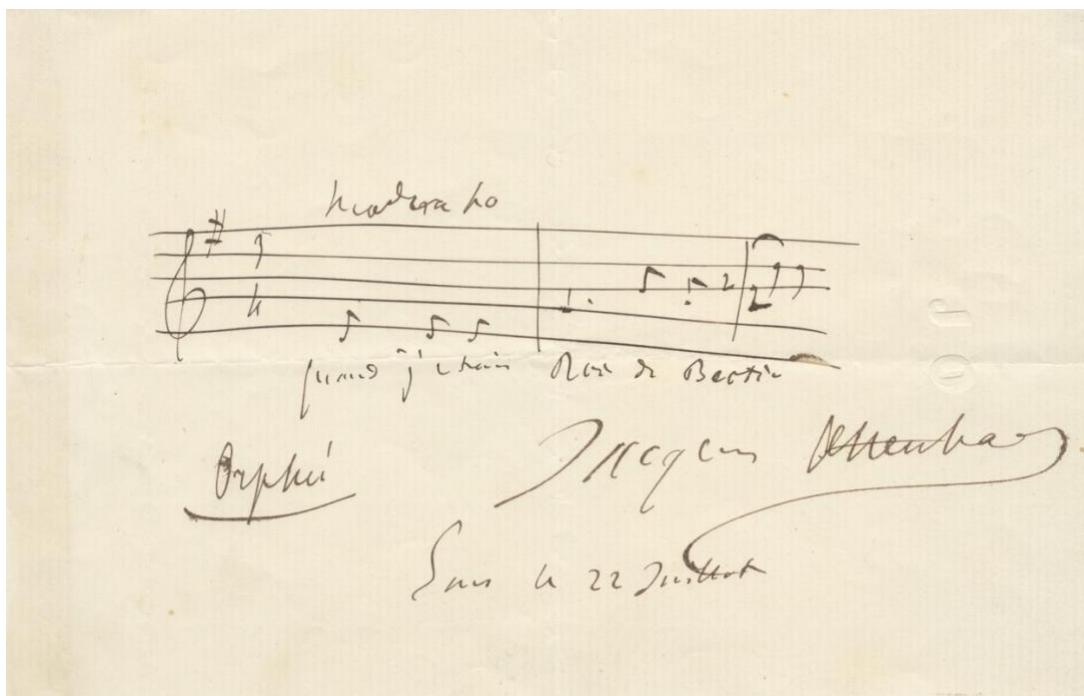 Moderato
quand j'étais Roi de Béotie
Orphée
Jacques Offenbach
le 22 Juillet